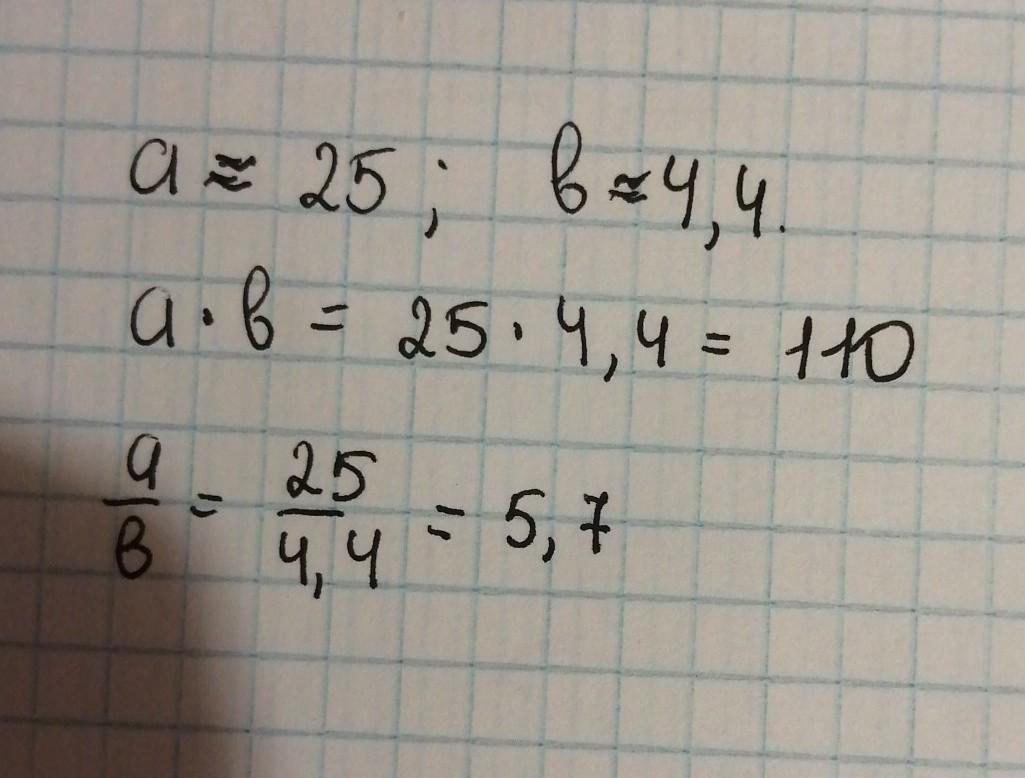 a ≈ 25; в ≈ 4,4.
a · в = 25 · 4,4 = 110
a/в = 25/4,4 = 5,7